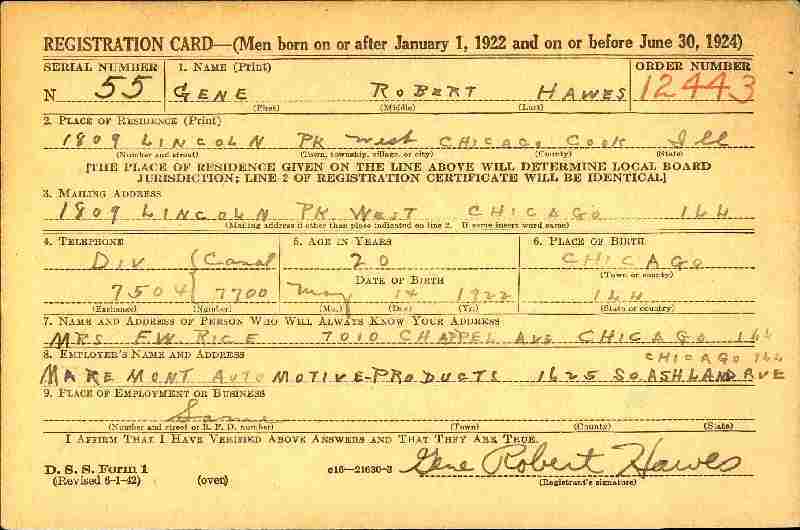 REGISTRATION CARD—(Men born on or after January 1, 1922 and on or before June 30, 1924)
SERIAL NUMBER 1. NAME (Print) ORDER NUMBER
N 55 GENE ROBERT HAWES 12443
(First) (Middle) (Last)
2. PLACE OF RESIDENCE (Print)
1809 LINCOLN PK West CHICAGO COOK Ill
(Number and street) (Town, township, village, or city) (County) (State)
[THE PLACE OF RESIDENCE GIVEN ON THE LINE ABOVE WILL DETERMINE LOCAL BOARD
JURISDICTION; LINE 2 OF REGISTRATION CERTIFICATE WILL BE IDENTICAL]
3. MAILING ADDRESS
1809 LINCOLN PK WEST CHICAGO ILL
(Mailing address if other than place indicated on line 2. If same insert word same)
4. TELEPHONE 5. AGE IN YEARS 6. PLACE OF BIRTH
DIV (Canal 20 CHICAGO
DATE OF BIRTH (Town or county)
7504 7700 May 14 1922 ILL
(Exchange) (Number) (Mo.) (Day) (Yr.) (State or country)
7. NAME AND ADDRESS OF PERSON WHO WILL ALWAYS KNOW YOUR ADDRESS
MRS F.W. RICE 7010 CHAPPEL AVE CHICAGO ILL
8. EMPLOYER'S NAME AND ADDRESS CHICAGO ILL
MAREMONT AUTOMOTIVE-PRODUCTS 1625 SO. ASHLAND AVE
9. PLACE OF EMPLOYMENT OR BUSINESS
Same
(Number and street or R. F. D. number) (Town) (County) (State)
I AFFIRM THAT I HAVE VERIFIED ABOVE ANSWERS AND THAT THEY ARE TRUE.
D. S. S. Form 1
(Revised 6-1-42) (over) c16—21630-3 Gene Robert Hawes
(Registrant's signature)